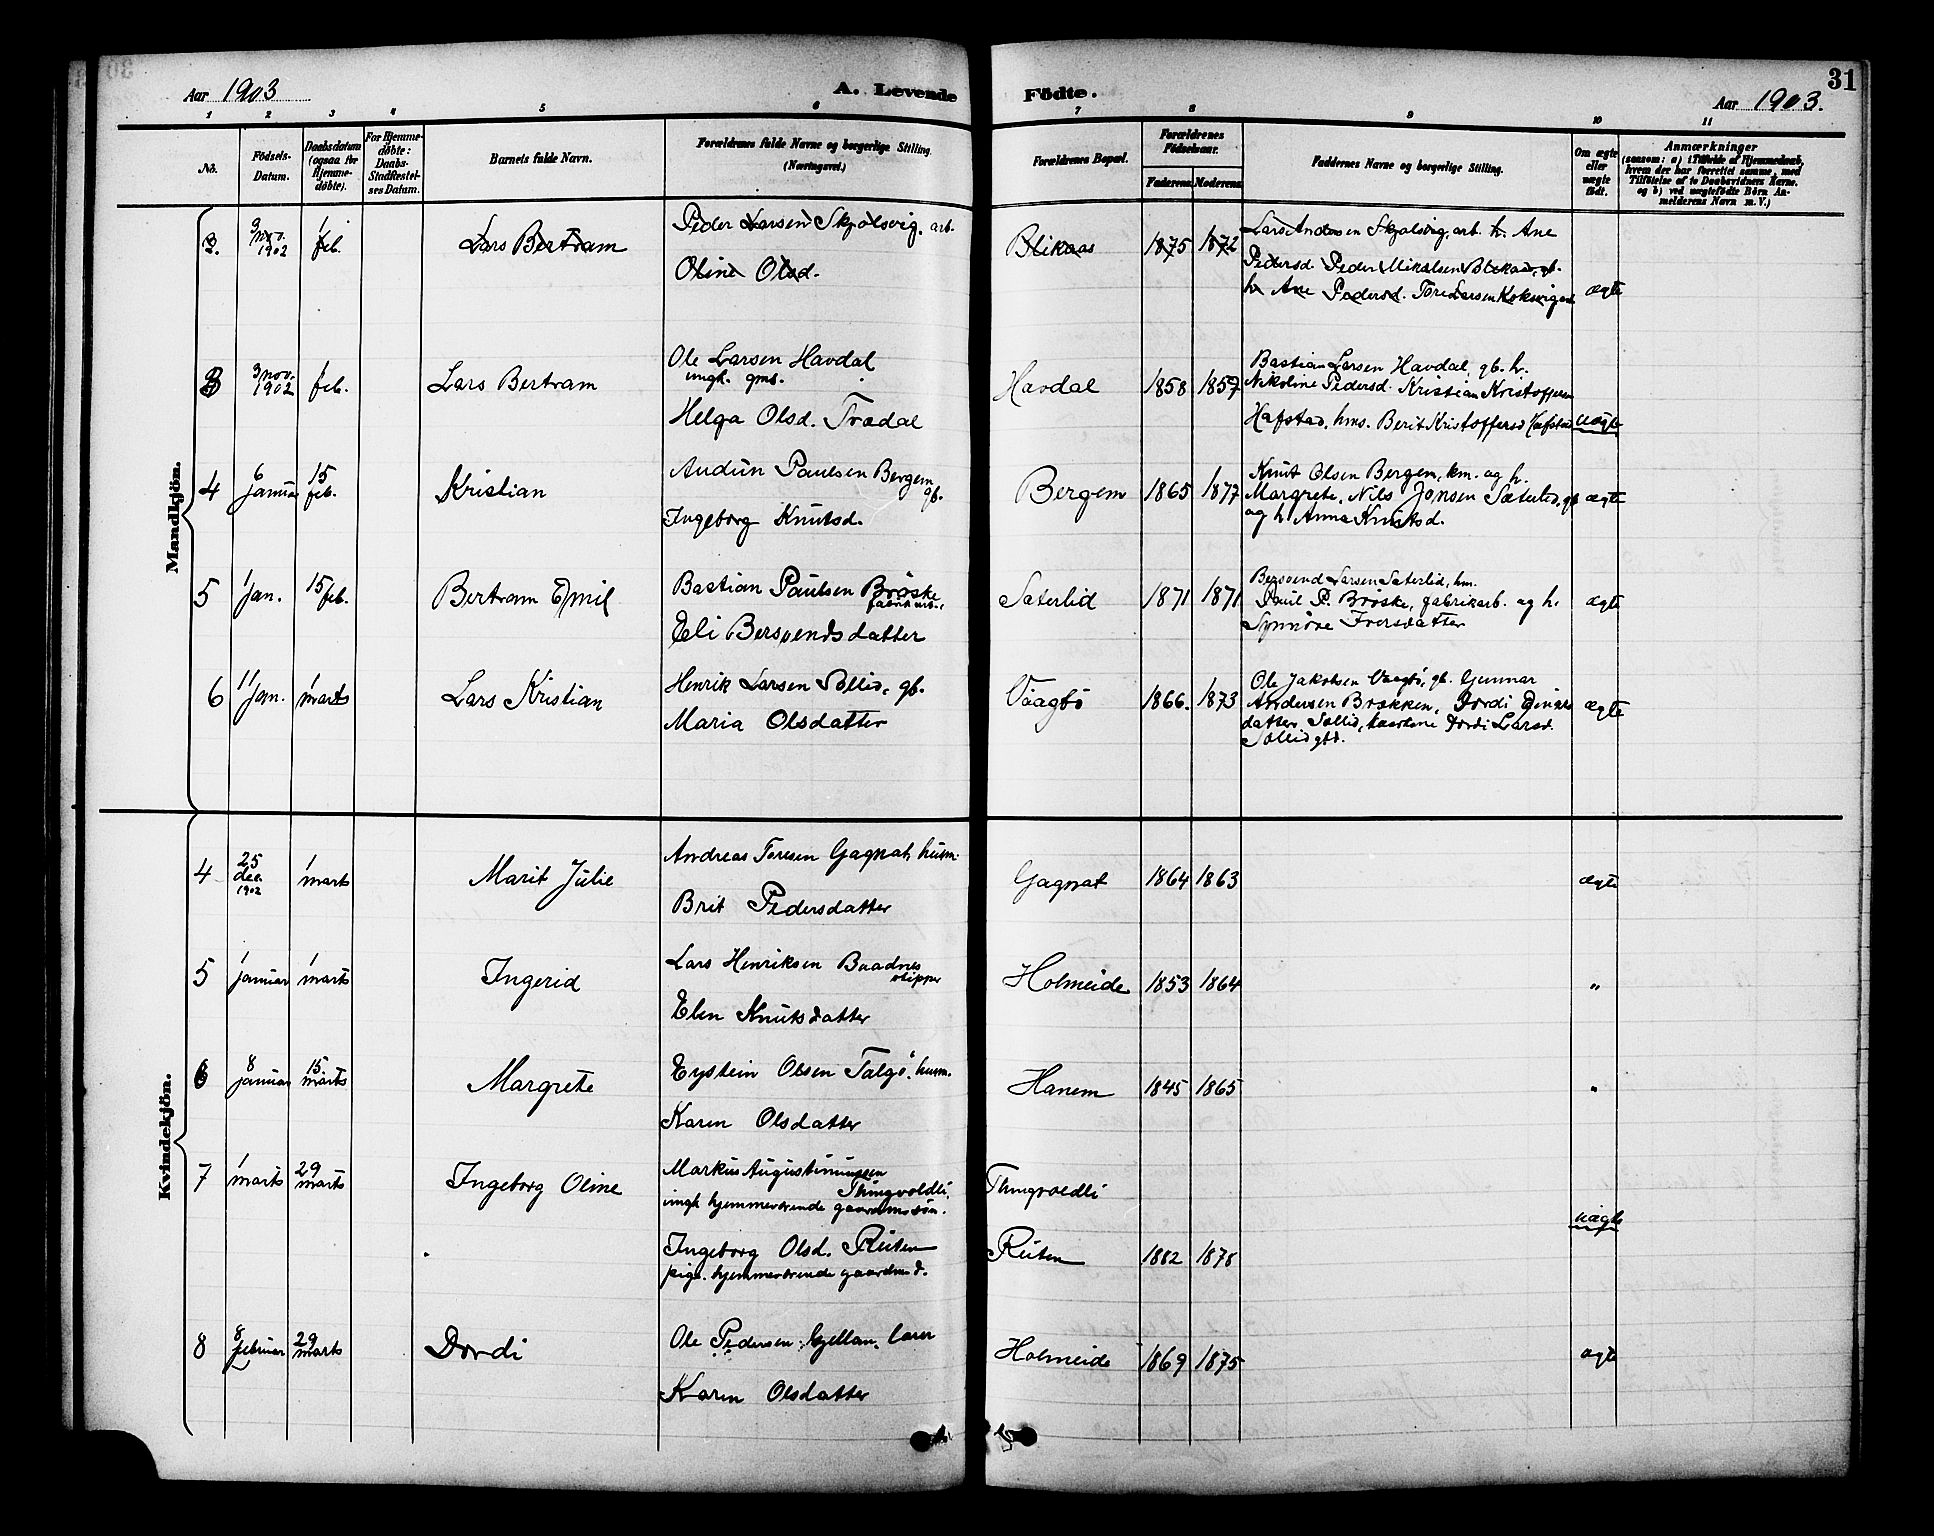 31
Aar 1903
A. Levende Födte.
Aar 1903.
1 2 3 4 5 6 7 8 9 10 11
No.
Födsels-
Datum.
Daabsdatum
(ogsaa for
Hjemme-
döbte).
For Hjemme-
döbte:
Daabs-
Stadfæstel-
ses Datum.
Barnets fulde Navn.
Forældrenes fulde Navne og borgerlige Stilling.
(Næringsvei.)
Forældrenes Bopæl.
Forældrenes
Födselsaar.
Faderens. Moderens.
Faddernes Navne og borgerlige Stilling.
Om ægte
eller
uægte
födt.
Anmærkninger
(saasom: a) i Tilfælde af Hjemmedaab,
hvem der har forrettet samme, med
Tilföielse af to Daabsvidners Navne.
og b) ved uægtefödte Börn An-
melderens Navn m. V.)
Mandkjön.
3. 3 nov. 1902 1 feb. Lars Bertram
Peder Larsen Skjolsvig. arb.
Oline Olsd.
Blikaas 1875 1872
Lars Andersen Skjolsvig, arb. h. Ane
Pedersd. Peder Mikalsen Blikaas, gb.
h. Ane Pedersd. Tore Larsen
ægte
3 3 nov. 1902 1 feb. Lars Bertram
Ole Larsen Havdal
ungk. gms.
Helga Olsd. Trædal
Havdal 1858 1857
Bastian Larsen Havdal, gb. h.
Nikoline Pedersd. Kristian Kristoffersen
Hafstad, hms. Berit Kristoffersd Hafstad
uægte
4 6 januar 15 feb. Kristian
Audun Paulsen Bergem
gb.
Ingeborg Knutsd.
Bergem 1865 1877
Knut Olsen Bergem, km. og h.
Margrete, Nils Jonsen Sæterlid, gb
og h. Anna Knutsd.
ægte
5 1 Jan. 15 feb. Bertram Emil
Bastian Paulsen Brøske
fabrikarb.
Eli Bersvendsdatter
Sæterlid 1871 1871
Bersvend Larsen Sæterlid, hm.
Paul P. Brøske, fabrikarb. og h.
Synnøve Iversdatter
ægte
6 11 Jan. 1 marts Lars Kristian
Henrik Larsen Sollid, gb.
Maria Olsdatter
Vaagbø 1866. 1873
Ole Jakobsen Vaagbø, gb. Gunnar
Andersen Brokken, Dordi Einars
datter Sollid, Dordi Larsd.
Sollid gbd.
ægte
Kvindekjön.
4 25 dec. 1902 1 marts Marit Julie
Andreas Toresen Gagnat, husm.
Brit Pedersdatter
Gagnat 1864 1863 ægte
5 1 januar 1 marts Ingerid
Lars Henriksen Baadnes
skipper
Elen Knutsdatter
Holmeide 1853 1864 "
6 8 januar 15 marts Margrete
Eystein Olsen Talgø. husm.
Karen Olsdatter
Hanem 1845 1865 "
7 1 marts 29 marts Ingeborg Oline
Markus Augustinussen
Thingvoldli,
ungk hjemmeværende gaardmssøn.
Ingeborg Olsd. Ruten
pige. hjemmeværende gaardm d.
Thingvoldli
Ruten 1882 1878
uægte
8 8 februar 29 marts Dordi
Ole Pedersen Gyllan. lærer
Karen Olsdatter
Holmeide 1869 1875 ægte